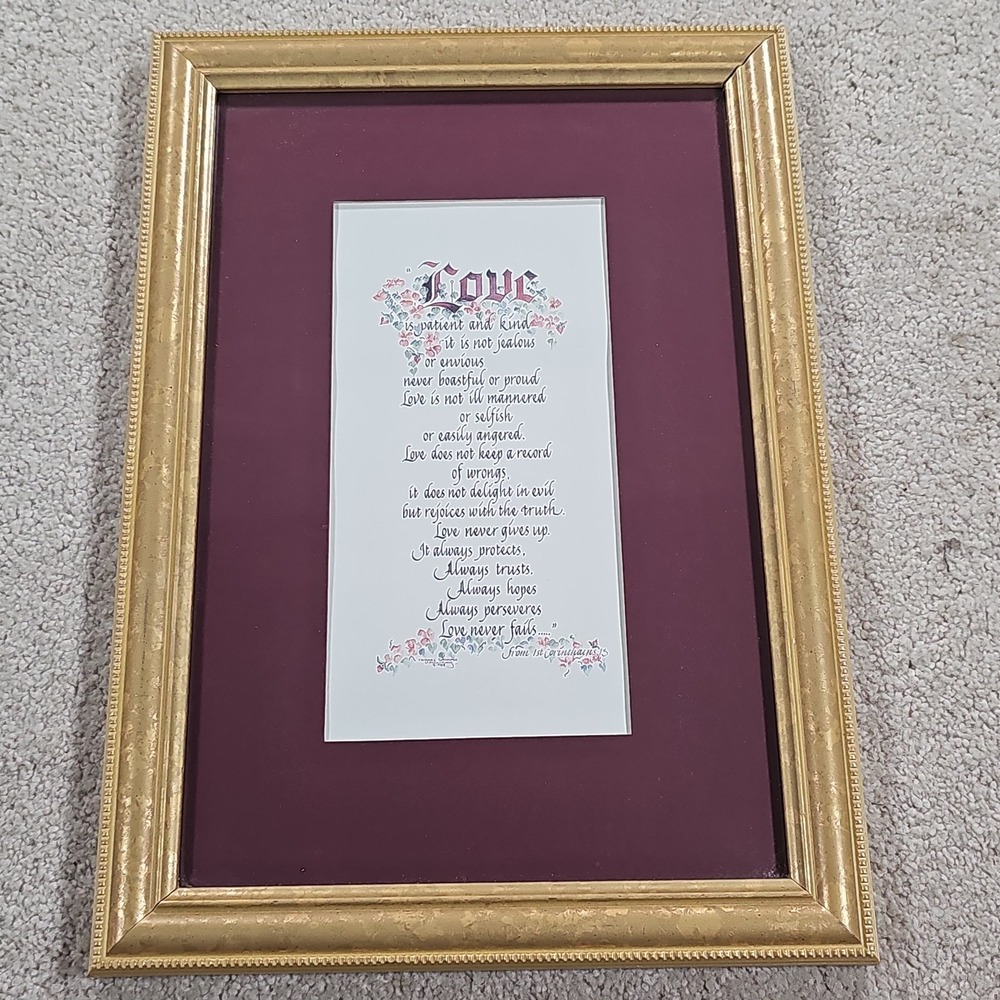 "Love
is patient and kind
it is not jealous
or envious
never boastful or proud
Love is not ill mannered
or selfish
or easily angered.
Love does not keep a record
of wrongs,
it does not delight in evil
but rejoices with the truth.
Love never gives up.
It always protects,
Always trusts.
Always hopes
Always perseveres
Love never fails....."
from 1st Corinthians 13